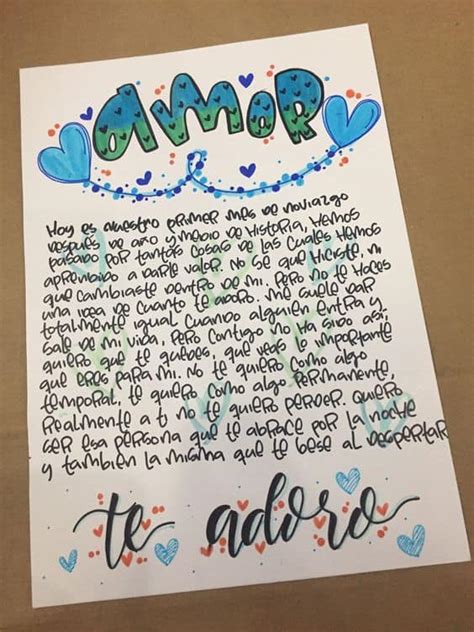 amor
Hoy es nuestro primer mes de noviazgo
después de año y medio de historia, Hemos
pasado por tantas cosas de las cuales Hemos
aprendido a darle valor. No sé que Hiciste, ni
que cambiaste dentro de mi, pero no te Haces
una idea de cuanto te adoro. Me suele dar
totalmente igual cuando alguien entra y
sale de mi vida, pero contigo no Ha sido así,
quiero que te quedes, que veas lo importante
que eres para mi. No te quiero como algo
temporal, te quiero como algo permanente,
Realmente a ti no te quiero perder. Quiero
ser esa persona que te abrace por la noche
y también la misma que te bese al despertar
te adoro